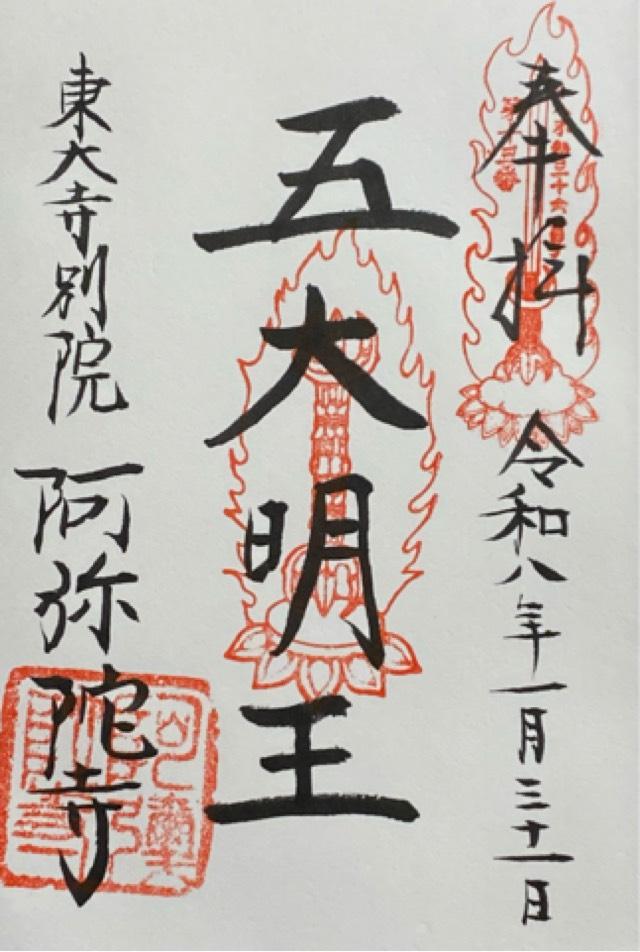 奉拝
令和八年一月三十一日
第十三番
五大明王
東大寺別院
阿弥陀寺